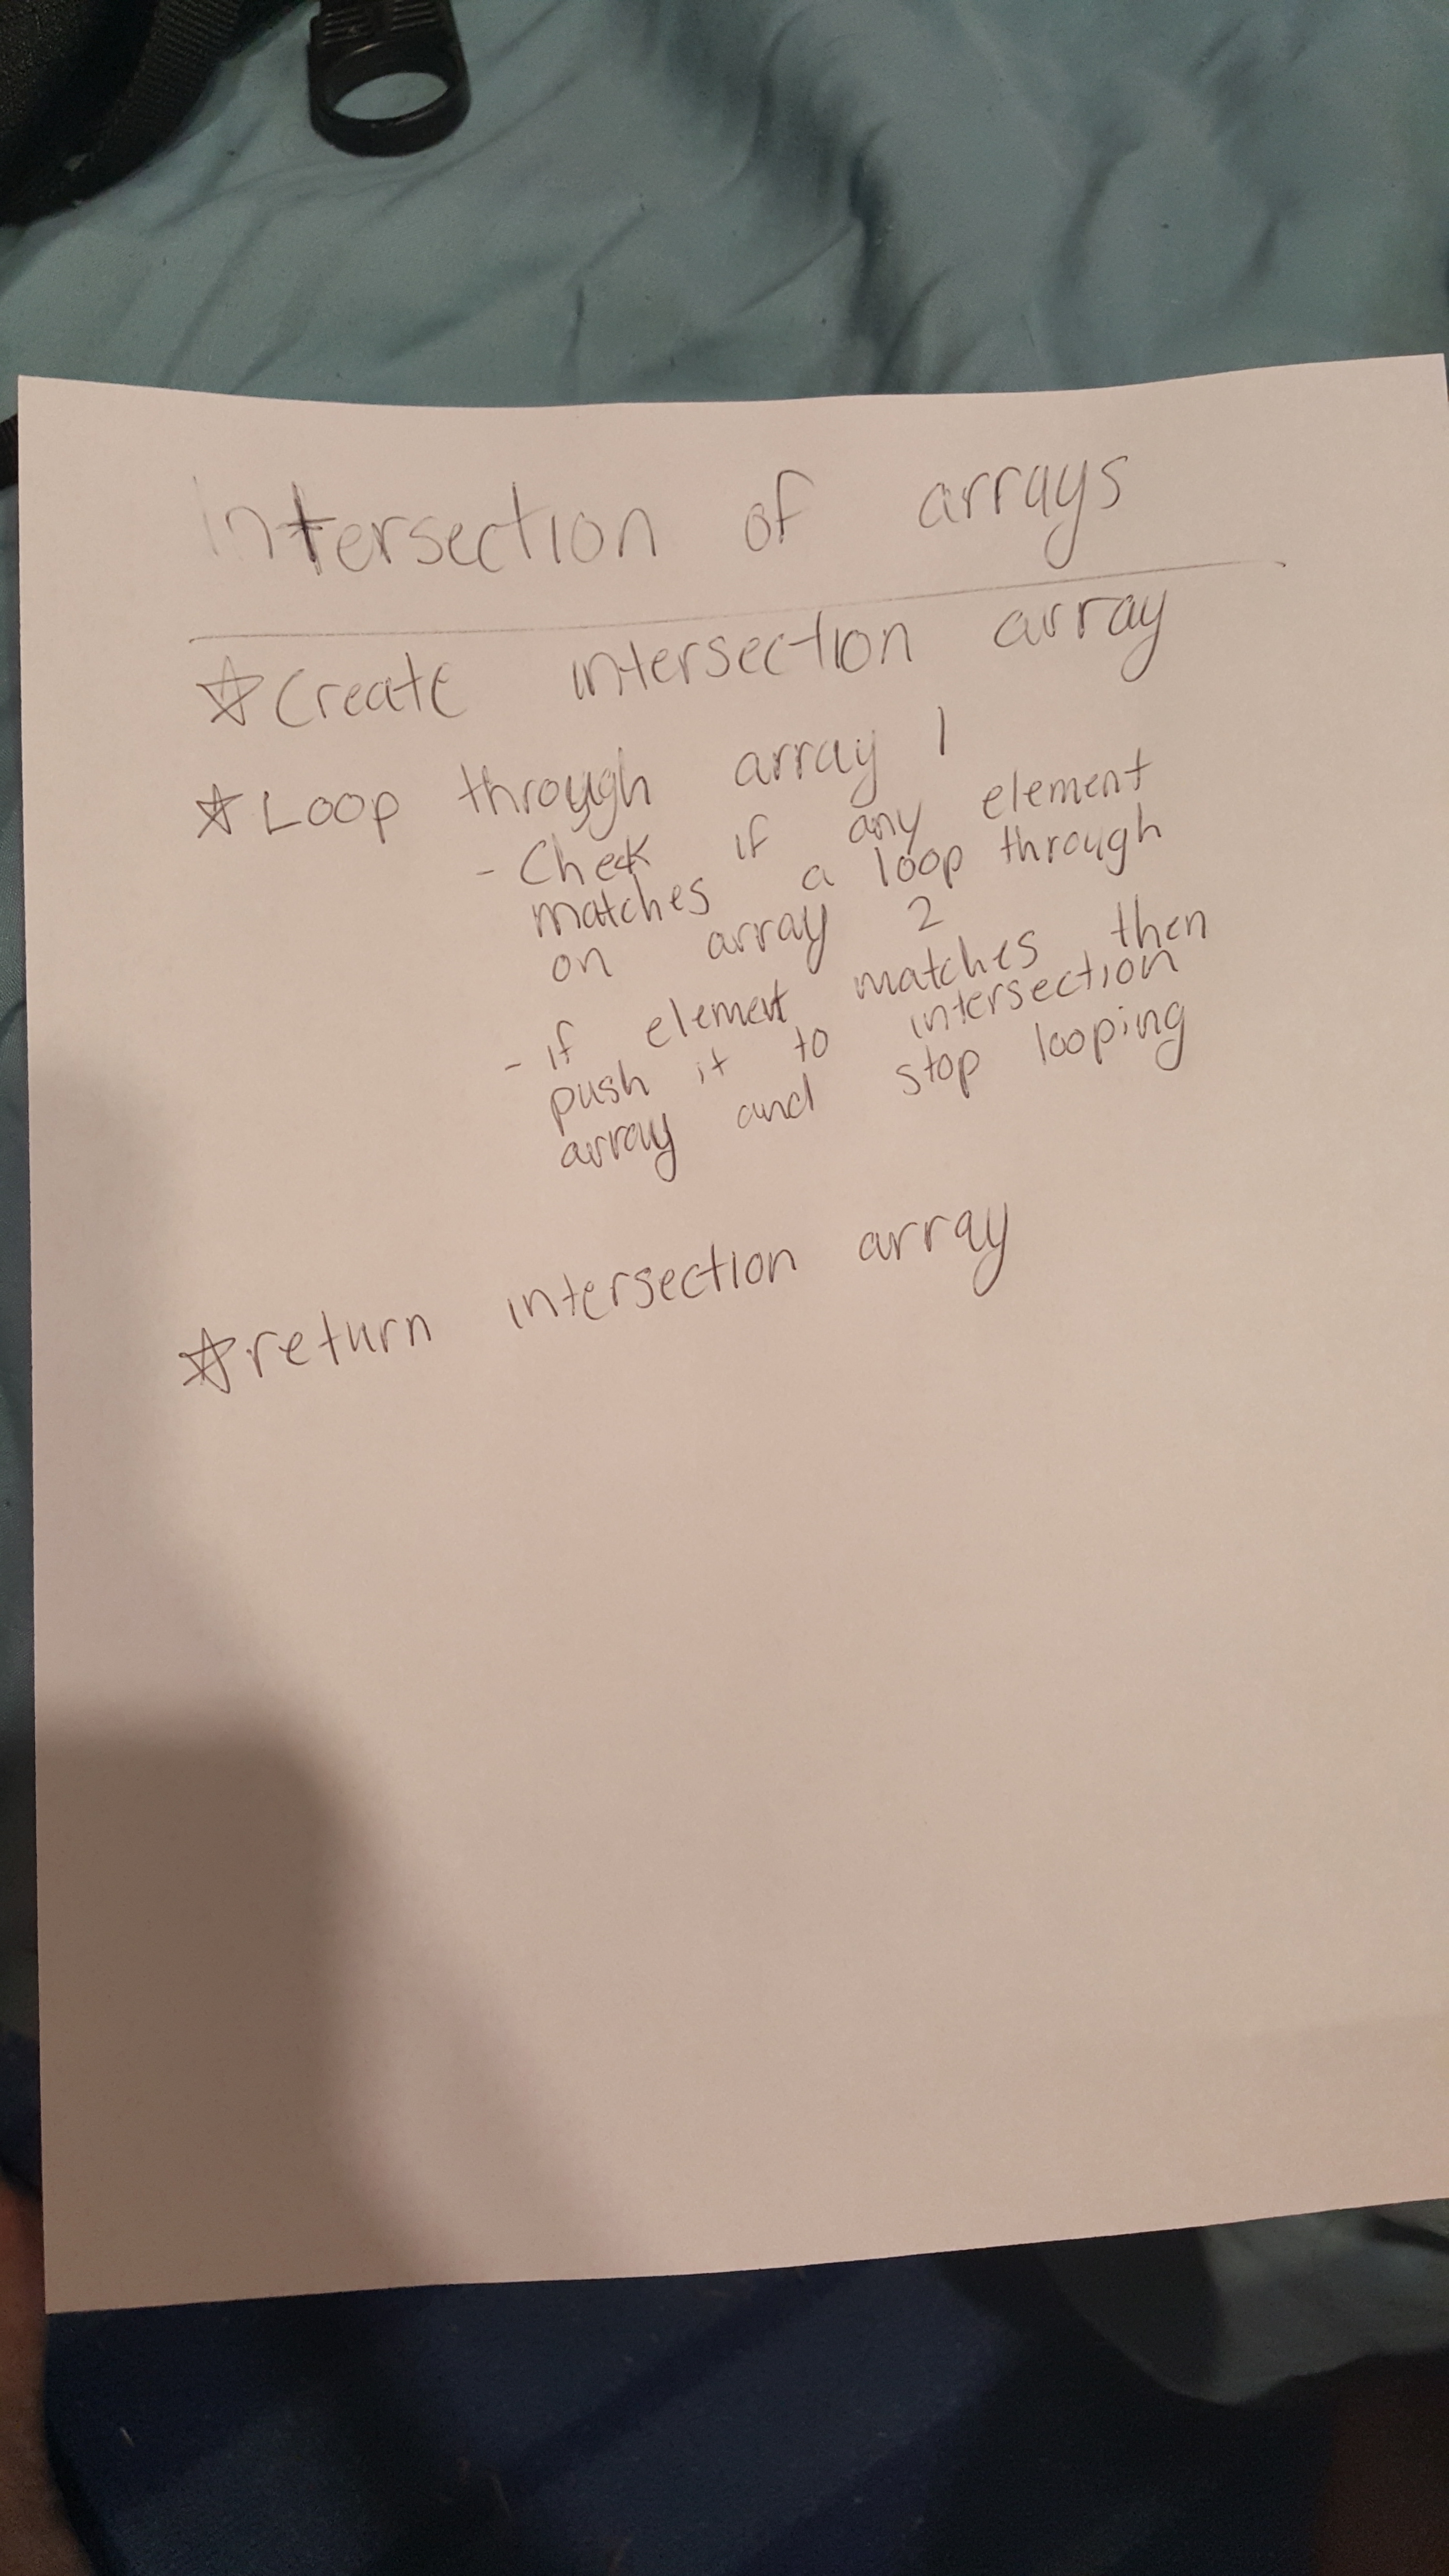 intersection of arrays
☆Create intersection array
☆Loop through array 1
- Check if any element
matches a loop through
on array 2
- if element matches then
push it to intersection
array and stop looping
☆return intersection array